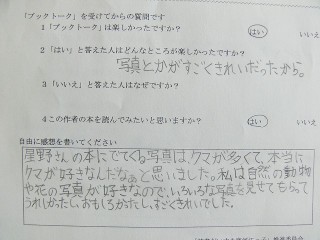 「ブックトーク」を受けてからの質問です
1「ブックトーク」は楽しかったですか? はい いいえ
2「はい」と答えた人はどんなところが楽しかったですか?
写真とかがすごくきれいだったから。
3「いいえ」と答えた人はなぜですか?
4この作者の本を読んでみたいと思いますか? はい いいえ
自由に感想を書いてください
星野さんの本にでてくる写真は、クマが多くて、本当に
クマが好きなんだなぁと思いました。私は自然の動物
や花の写真が好きなので、いろいろな写真を見せてもらって
うれしかったし、おもしろかったし、すごくきれいでした。